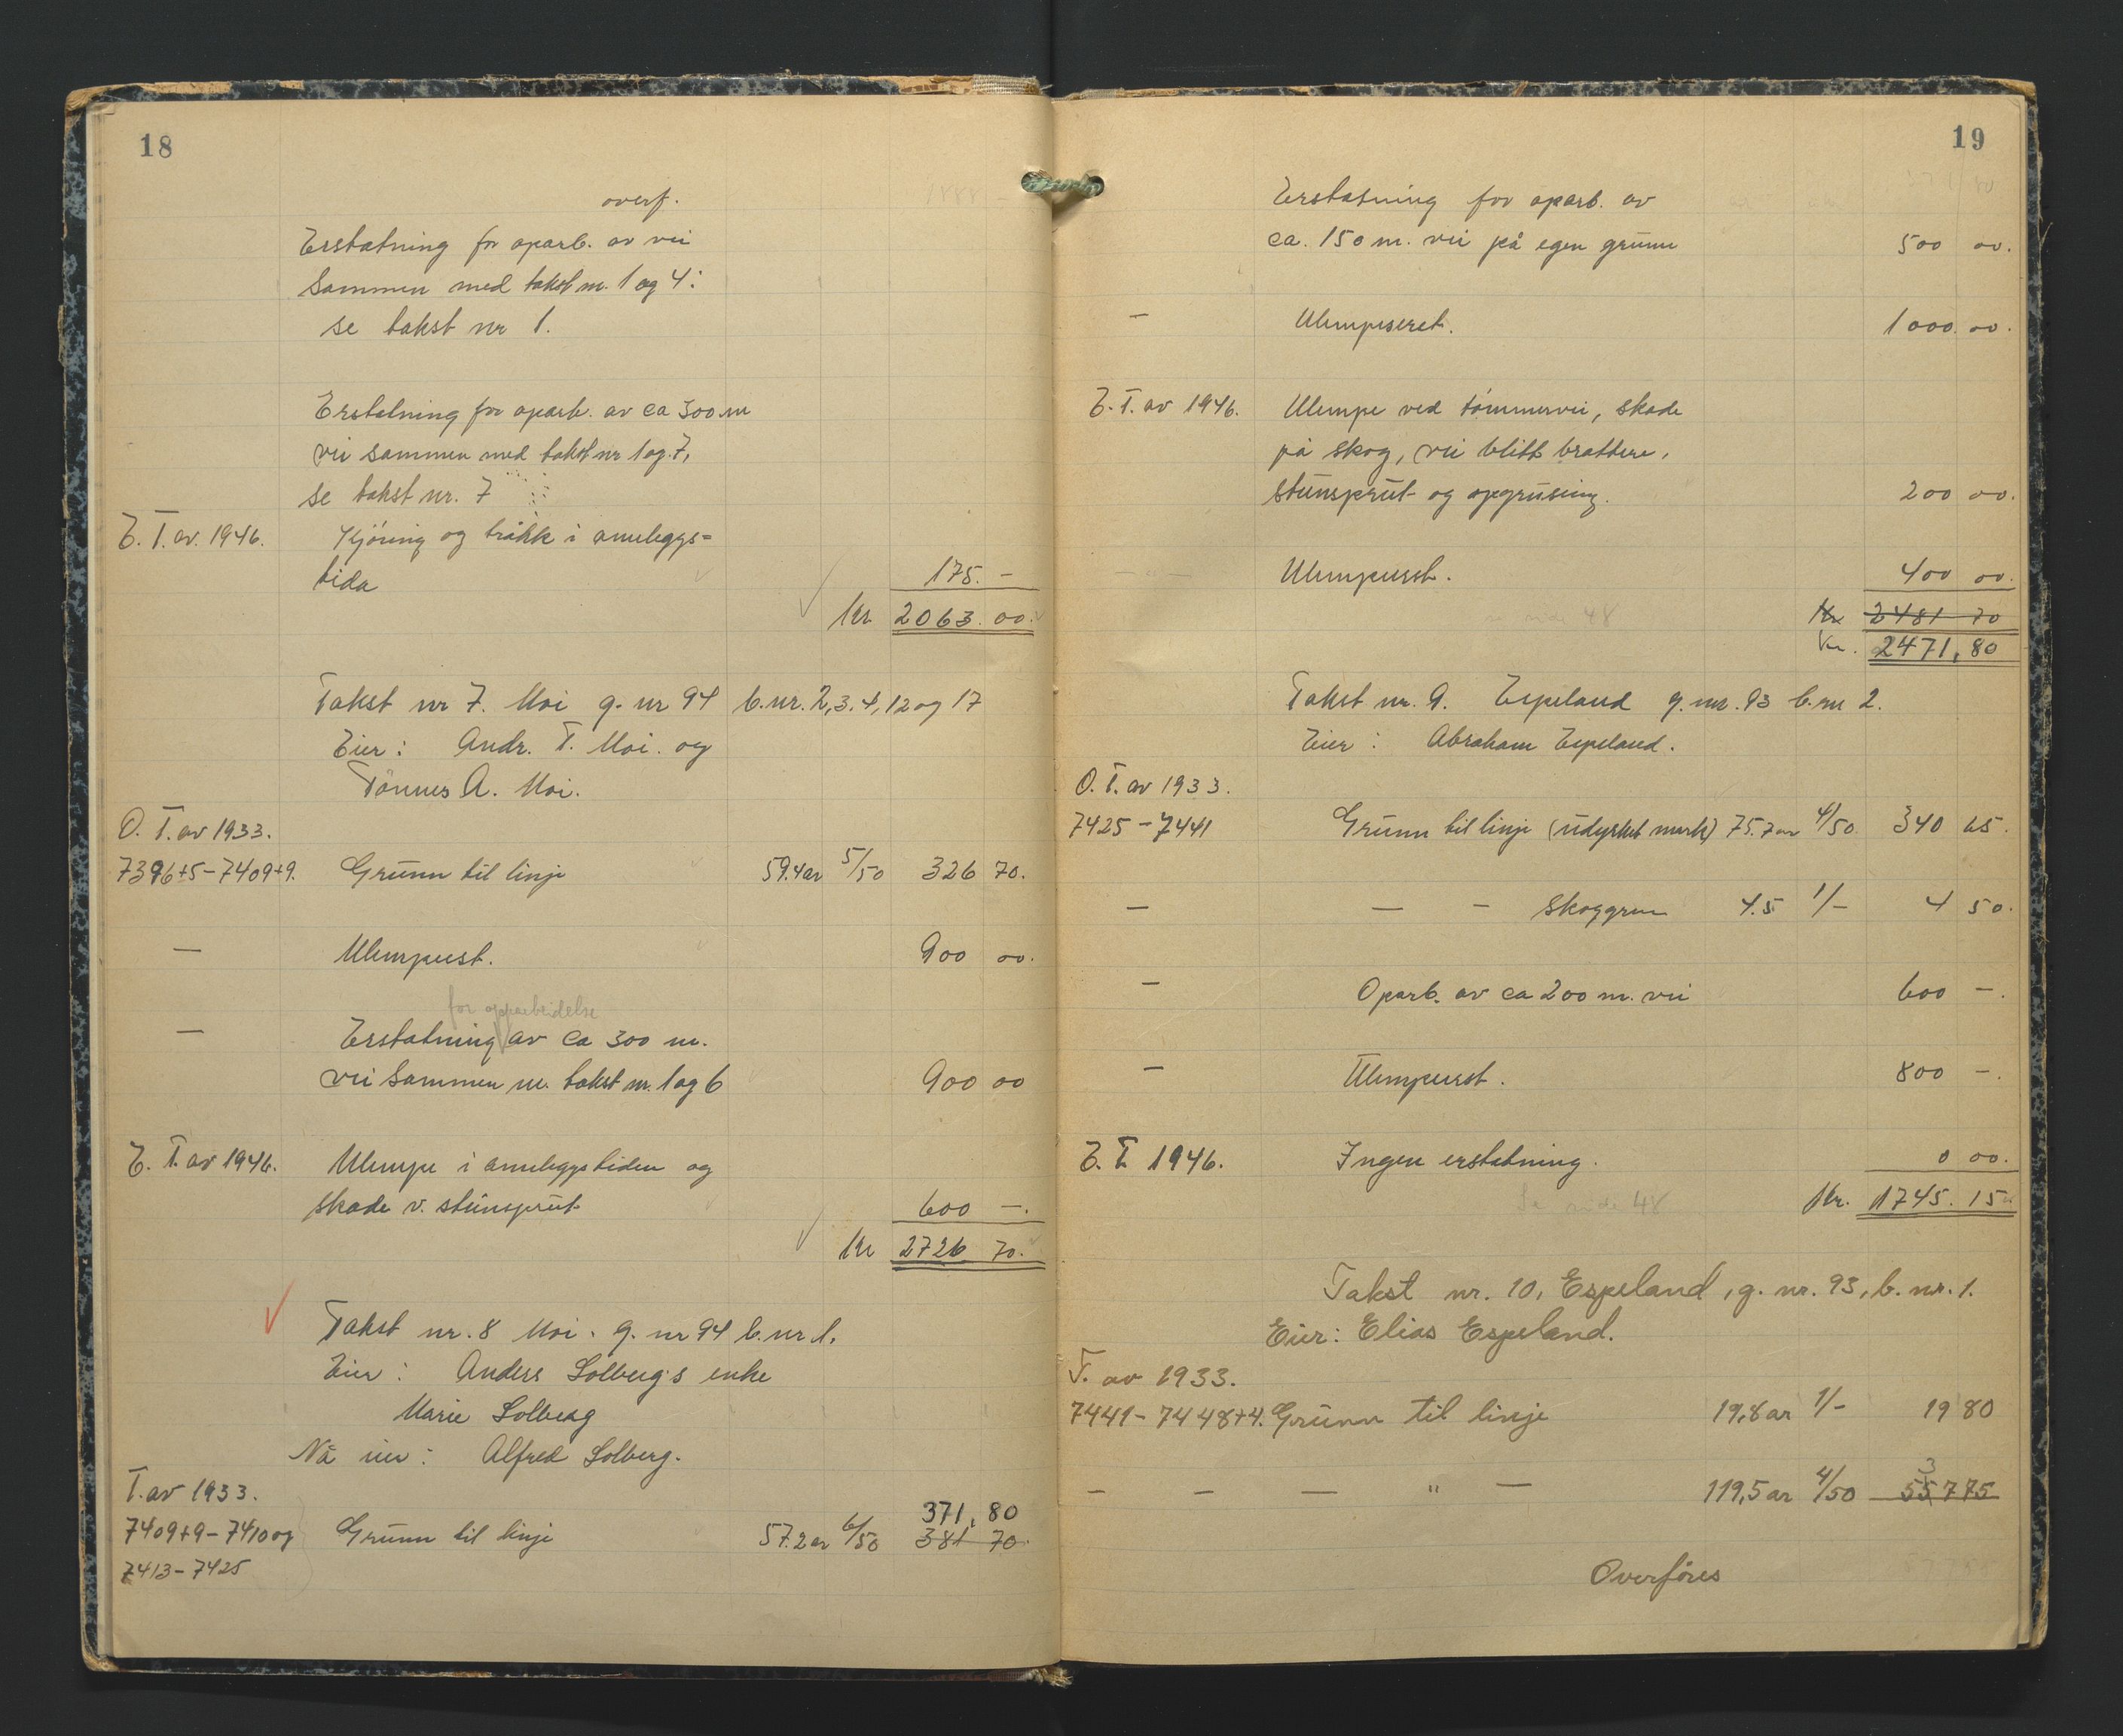 18
overf.
Erstatning for oparb. av vei
sammen med takst nr. 1 og 4:
se takst nr 1.
Erstatning for oparb. av ca 300 m
vei sammen med takst nr 1 og 7,
se takst nr. 7
E. T. av. 1946. Kjöring og tråkk i anleggs=
tida 175. -
Kr 2063. 00.
Takst nr 7. Moi g. nr 94 b. nr. 2, 3. 4, 12 og 17
Eier: Andr. T. Moi. og
Tönnes A. Moi.
O. T. av 1933.
7396+5 - 7409+9. Grunn til linje 59.4 ar 5/50 326 70.
— Ulempeest. 900 00.
for opparbeidelse
— Erstatning av ca 300 m.
vei sammen m. takst nr. 1 og 6 900 00
E. T. av 1946. Ulempe i anleggstiden og
skade v. stensprut 600 -.
Kr 2726 70.
Takst nr. 8 Moi. g. nr 94 b. nr 1.
Eier: Anders Solberg's enke
Marie Solberg
Nå eier: Alfred Solberg.
T. av 1933.
371,80
7409+9 - 7410 og Grunn til linje 57.2 ar 6/50 381 70.
7413 - 7425
19
Erstatning for oparb. av
ca. 150 m. vei på egen grunn 500 00.
— Ulempeserst. 1000. 00.
E. T. av 1946. Ulempe ved tömmervei, skade
på skog, vei blitt brattere,
stensprut og opgrusing. 200 00.
— " — Ulempeerst. 400 00.
se side 48 Kr 2481 70
Kr. 2471,80
Takst nr. 9. Espeland g. nr. 93 b. nr 2.
Eier: Abraham Espeland.
O. T. av 1933.
7425 - 7441 Grunn til linje (udyrket mark) 75.7 ar 4/50 340 65.
— — - skoggrun 4.5 1/- 4 50.
— Oparb. av ca 200 m. vei 600 -.
— Ulempeerst. 800 -.
E. T. 1946. Ingen erstatning. 0 00.
Se side 48 Kr. 1745. 15
Takst nr. 10, Espeland, g. nr. 93, b. nr. 1.
Eier: Elias Espeland.
T. av 1933.
7441 - 7448+4. Grunn til linje 19,8 ar 1/- 19 80
3
— — — " — 119,5 ar 4/50 557 75
Overföres